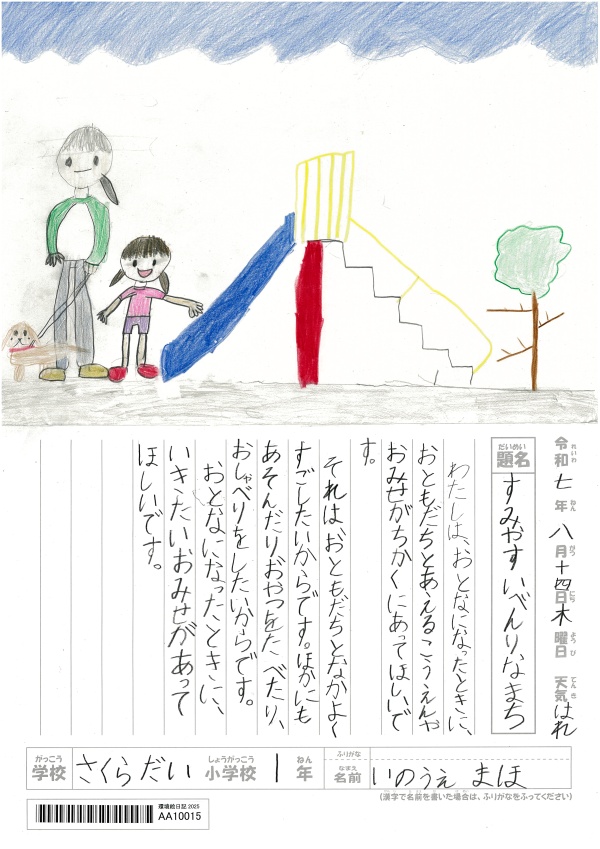 令和七年八月十四日木曜日 天気はれ
れいわ ねん がつ にち ようび てんき
だいめい
題名 すみやすいべんりなまち
わたしは、おとなになったときに、
おともだちとあえるこうえんや
おみせがちかくにあってほしいで
す。
それは、おともだちとなかよく
すごしたいからです。ほかにも
あそんだりおやつをたべたり、
おしゃべりをしたいからです。
おとなになったときに、
いきたいおみせがあって
ほしいです。
がっこう しょうがっこう ねん
学校 さくらだい 小学校 1年
ふりがな
なまえ
名前 いのうえ まほ
(漢字で名前を書いた場合は、ふりがなをふってください)
環境絵日記 2025
AA10015